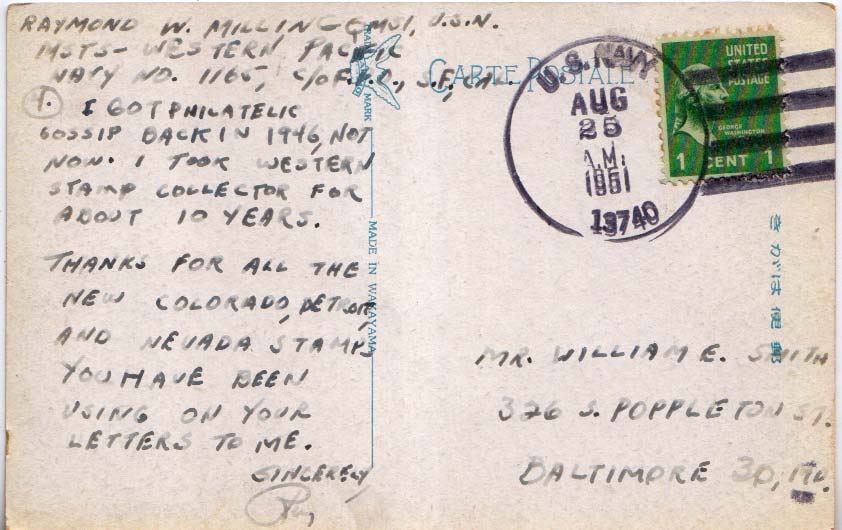 RAYMOND W. MILLINGGMSI, U.S.N.
MSTS - WESTERN PACIFIC
NAVY NO. 1165, C/O F.P.O., S.F., CAL.
1. I GOT PHILATELIC
GOSSIP BACK IN 1946, NOT
NOW. I TOOK WESTERN
STAMP COLLECTOR FOR
ABOUT 10 YEARS.
THANKS FOR ALL THE
NEW COLORADO, DETROIT,
AND NEVADA STAMPS
YOU HAVE BEEN
USING ON YOUR
LETTERS TO ME.
SINCERELY,
Ray
TRADE MARK
MADE IN WAKAYAMA
CARTE POSTALE
U.S. NAVY
AUG
25
A.M.
1951
13740
UNITED
STATES
POSTAGE
GEORGE
WASHINGTON
1 CENT 1
きがは便郵
MR. WILLIAM E. SMITH
326 S. POPPLETON ST.
BALTIMORE 30, MD.